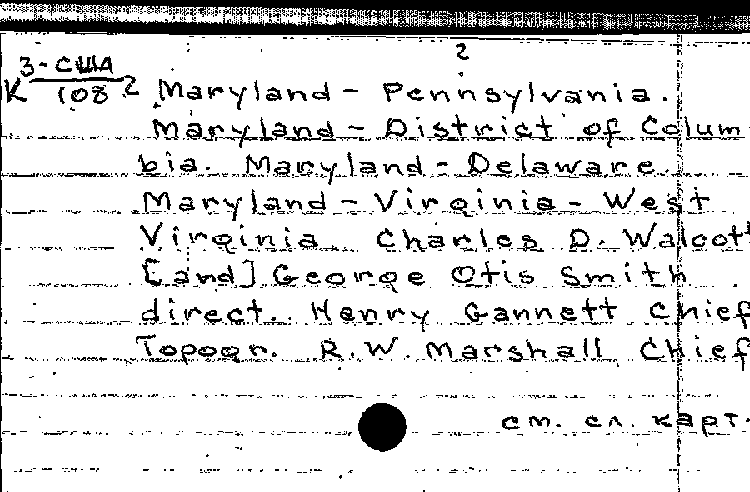 2
К 3-США/108 2 Maryland - Pennsylvania.
Maryland - District of Colum
bia. Maryland - Delaware.
Maryland - Virginia - West
Virginia Charles D. Walcott
[and] George Otis Smith
direct. Henry Gannett Chief
Topogr. R.W. Marshall Chief
см. сл. карт.